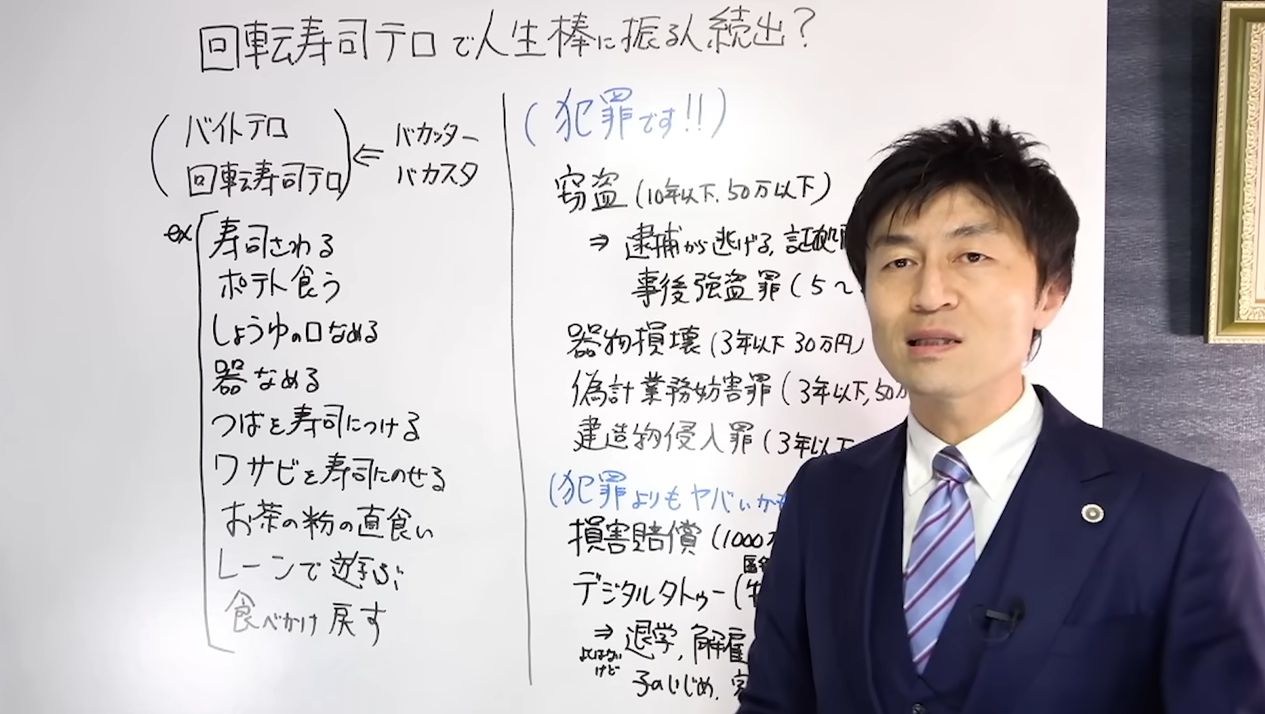 回転寿司テロで人生棒に振る人続出?
(バイトテロ
回転寿司テロ) ⇐ バカッター
バカスタ
ex 寿司さわる
ポテト食う
しょうゆの口なめる
器なめる
つばを寿司につける
ワサビを寿司にのせる
お茶の粉の直食い
レーンで遊ぶ
食べかけ戻す
(犯罪です!!)
窃盗(10年以下、50万以下)
⇒ 逮捕から逃げる,証拠
事後強盗罪(5~
器物損壊(3年以下 30万円)
偽計業務妨害罪(3年以下,50万
建造物侵入罪(3年以下
(犯罪よりもヤバいかも
損害賠償(1000万
デジタルタトゥー(
⇒ 退学,解雇
けど
子のいじめ、